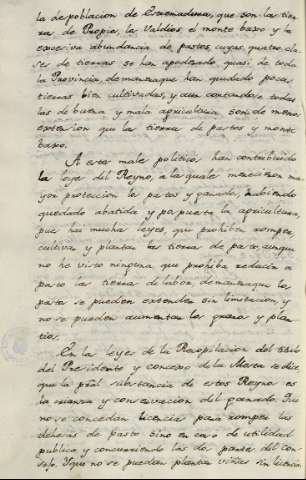 la despoblacion de Extremadura, que son las tier-
ras de Propios, los Valdios, el monte baxo y la
excesiva abundancia de pastos cuyas quatro cla-
ses de tierras se han apoderado quasi de toda
la Provincia, de manera que han quedado pocas
tierras bien cultivadas, y aun contando todas
las de buena y mala agricultura son de menos
extension que las tierras de pastos y monte
baxo.
A estos males politicos han contribuido
las leyes del Reyno, a las quales merecieron ma-
yor proteccion los pastos y ganados, habiendo
quedado abatida y pospuesta la agricultura,
pues hai muchas leyes, que prohiben romper,
cultivar y plantar las tierras de pasto, aunque
no he visto ninguna que prohiba reducir a
pasto las tierras de labor, de manera que los
pastos se pueden extender sin limitacion, y
no se pueden aumentar los granos y plan-
tios.
En las leyes de la Recopilacion del titulo
del Presidente y concejo de la Mesta se dice,
que la pral substancia de estos Reynos es
la crianza y conservacion del ganado. Que
no se concedan licencias para romper las
dehesas de pasto sino en caso de utilidad
publica y concurriendo las dos partes del con-
sejo. Y que no se puedan plantar viñas sin licencia